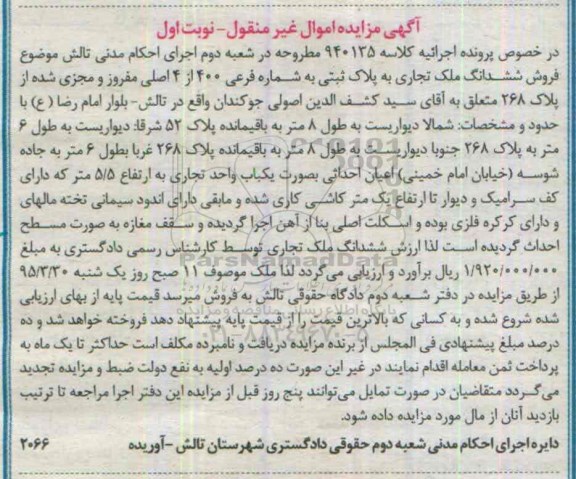 آگهی مزایده اموال غیر منقول - نوبت اول
در خصوص پرونده اجرائیه کلاسه ۹۴۰۱۳۵ مطروحه در شعبه دوم اجرای احکام مدنی تالش موضوع
فروش ششدانگ ملک تجاری به پلاک ثبتی به شماره فرعی ۴۰۰ از ۴ اصلی مفروز و مجزی شده از
پلاک ۲۶۸ متعلق به آقای سید کشف الدین اصولی جوکندان واقع در تالش- بلوار امام رضا (ع) با
حدود و مشخصات: شمالا دیواریست به طول ۸ متر به باقیمانده پلاک ۵۲ شرقا: دیواریست به طول ۶
متر به پلاک ۲۶۸ جنوبا دیواریست به طول ۸ متر به باقیمانده پلاک ۲۶۸ غربا بطول ۶ متر به جاده
شوسه (خیابان امام خمینی) اعیان احداثی بصورت یکباب واحد تجاری به ارتفاع ۵/۵ متر که دارای
کف سرامیک و دیوار تا ارتفاع یک متر کاشی کاری شده و مابقی دارای اندود سیمانی تخته مالهای
و دارای کرکره فلزی بوده و اسکلت اصلی بنا از آهن اجرا گردیده و سقف مغازه به صورت مسطح
احداث گردیده است لذا ارزش ششدانگ ملک تجاری توسط کارشناس رسمی دادگستری به مبلغ
۱/۹۲۰/۰۰۰/۰۰۰ ریال برآورد و ارزیابی می‌گردد لذا ملک موصوف ۱۱ صبح روز یک شنبه ۹۵/۳/۳۰
از طریق مزایده در دفتر شعبه دوم دادگاه حقوقی تالش به فروش میرسد قیمت پایه از بهای ارزیابی
شده شروع شده و به کسانی که بالاترین قیمت را از قیمت پایه پیشنهاد دهد فروخته خواهد شد و ده
درصد مبلغ پیشنهادی فی المجلس از برنده مزایده دریافت و نامبرده مکلف است حداکثر تا یک ماه به
پرداخت ثمن معامله اقدام نمایند در غیر این صورت ده درصد اولیه به نفع دولت ضبط و مزایده تجدید
می‌گردد متقاضیان در صورت تمایل می‌توانند پنج روز قبل از مزایده این دفتر اجرا مراجعه تا ترتیب
بازدید آنان از مال مورد مزایده داده شود.
دایره اجرای احکام مدنی شعبه دوم حقوقی دادگستری شهرستان تالش - آوریده ۲۰۶۶
ParsNamadData